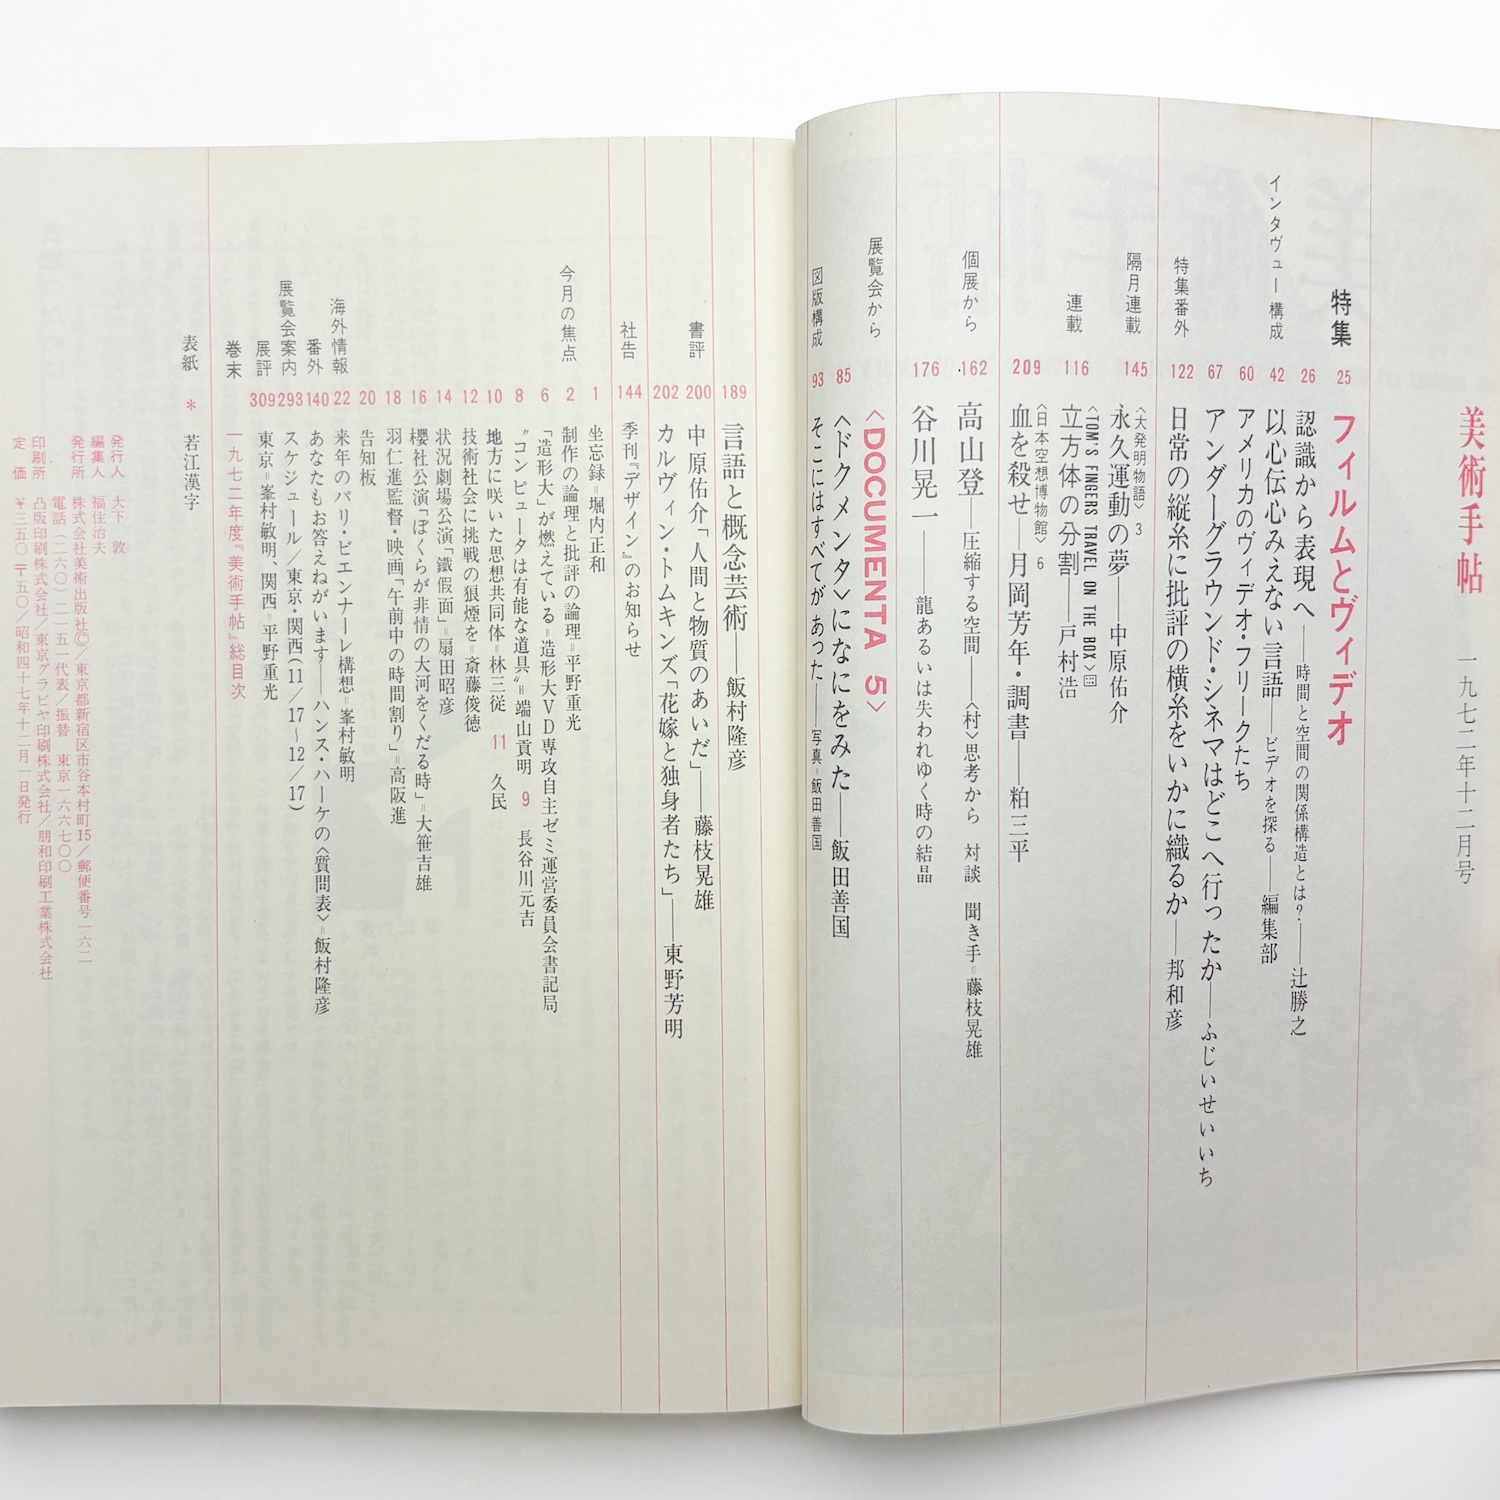 美術手帖　一九七二年十二月号
特集　25　フィルムとヴィデオ
26　認識から表現へ——時間と空間の関係構造とは？——辻勝之
インタヴュー構成　42　以心伝心みえない言語——ビデオを探る——編集部
60　アメリカのヴィデオ・フリークたち
67　アンダーグラウンド・シネマはどこへ行ったか——ふじいせいいち
特集番外　122　日常の縦糸に批評の横糸をいかに織るか——邦和彦
隔月連載　145　〈大発明物語〉3
永久運動の夢——中原佑介
連載　116　〈TOM'S FINGERS TRAVEL ON THE BOX〉回
立方体の分割——戸村浩
〈日本空想博物館〉6
209　血を殺せ——月岡芳年・調書——粕三平
個展から　162　高山登——圧縮する空間——〈村〉思考から　対談　聞き手＝藤枝晃雄
176　谷川晃一——龍あるいは失われゆく時の結晶
展覧会から　〈DOCUMENTA 5〉
85　〈ドクメンタ〉になにをみた——飯田善国
図版構成　93　そこにはすべてがあった——写真＝飯田善国
189　言語と概念芸術——飯村隆彦
書評　200　中原佑介「人間と物質のあいだ」——藤枝晃雄
202　カルヴィン・トムキンズ「花嫁と独身者たち」——東野芳明
社告　144　季刊『デザイン』のお知らせ
1　坐忘録＝堀内正和
今月の焦点　2　制作の論理と批評の論理＝平野重光
6　「造形大」が燃えている＝造形大VD専攻自主ゼミ運営委員会書記局
8　"コンピュータは有能な道具"＝端山貢明　9　長谷川元吉
10　地方に咲いた思想共同体＝林三従　11　久民
12　技術社会に挑戦の狼煙を＝斎藤俊徳
14　状況劇場公演「鐵假面」＝扇田昭彦
16　櫻社公演「ぼくらが非情の大河をくだる時」＝大笹吉雄
18　羽仁進監督・映画「午前中の時間割り」＝高阪進
20　告知板
海外情報　22　来年のパリ・ビエンナーレ構想＝峯村敏明
番外　140　あなたもお答えねがいます——ハンス・ハーケの〈質問表〉＝飯村隆彦
展覧会案内　293　スケジュール／東京・関西（11／17～12／17）
展評　309　東京＝峯村敏明、関西＝平野重光
巻末　一九七二年度『美術手帖』総目次
表紙＊若江漢字
発行人　大下敦
編集人　福住治夫
発行所　株式会社美術出版社©／東京都新宿区市谷本村町15／郵便番号一六二
電話（二六〇）二一五一代表／振替　東京一六六七〇〇
印刷所　凸版印刷株式会社／東京グラビヤ印刷株式会社／朋和印刷工業株式会社
定　価　￥三五〇 〒五〇／昭和四十七年十二月一日発行